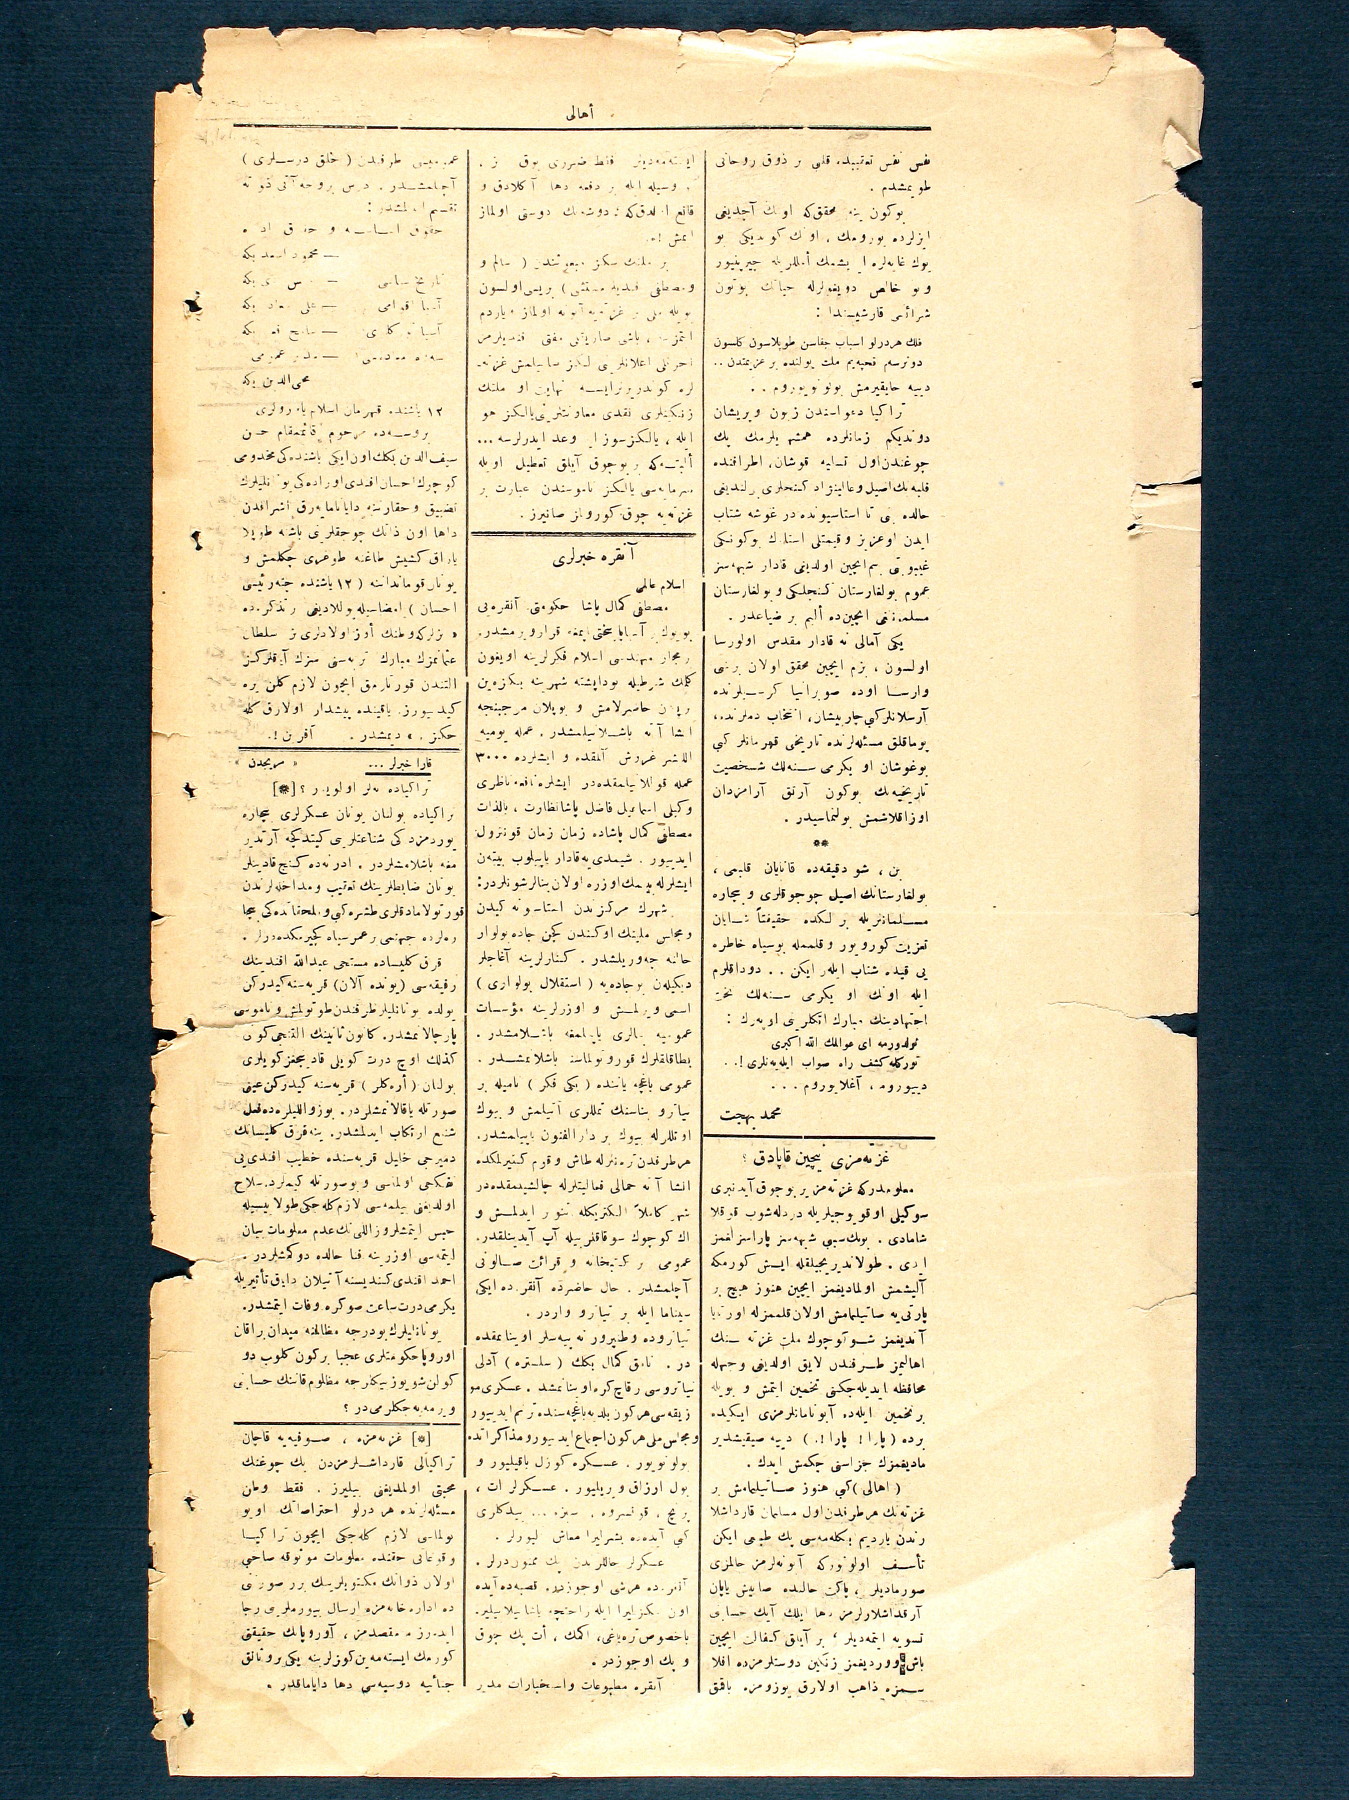 أهالی
نفس نفس تعقیبده قلبی بر ذوق روحانی
طویمشدم .
بوکون ینه محقق‌که اونك آچدیغی
ایزلرده یورومك ، اونك کوسـ بو
یوك غایه‌لره
و بو خالص دویغولرله حیاتك بوتون
شرائطی قارشیسندا :
فلك هر درلو اسباب جفاسن طوپلاسون کلسون
دونرسم قحبه‌یم ملت یولنده بر عزیمتدن ..
دییه حایقیرمش بولونویوروم ..
تراکیا دعواسندن زبون و پریشان
دوندیکم زمانلرده همشهریلرمك پك
چوغندن اول تسلیه قوشان، اطرافنده
حالده بی تا استاسیونده در غوشه شتاب
ایدن او عزیز و قیمتلی استادك بوکونکی
غیبوبتی بم ایچین اولدیغی قادار شبهه‌سز
عموم بولغارستان کنجلکی و بولغارستان
مسلمانلغی ایچین ده ألیم بر ضیاعدر .
یکی آمالی نه قادار مقدس اولورسا
اولسون ، بزم ایچین محقق اولان بر شی
وارسا اوده صوبرانیا کرسیلرنده
آرسلانلر کبی چارپیشان ، انتخاب دملرنده،
یوماقلق مسئله‌لرنده تاریخی قهرمانلر کبی
بوغوشان او یکرمی سنه‌لك شخصیت
تاریخیه‌نك بوکون آرتق آرامزدان
اوزاقلاشمش بولنماسیدر .
**
بن ، شو دقیقه‌ده قانایان قلبمی ،
بولغارستانك اصیل چوجوقلری و بیچاره
مسلمانلریله برلکده حقیقتاً شایان
تعزیت کورویور و قلممله بو سیاه خاطره
یی قیده شتاب ایلر ایکن .. دوداقلرم
ایله اونك او یکرمی سنه‌لك
اجتهادینك مبارك اتکلرینی اوپه‌رك :
ئولدورمه ای عوالمك الله اکبری
تورکله کشف راه صواب ایله‌ینلری ! . .
دییورم ، آغلایورم ...
محمد بهجت
غزته‌مزی نیچین قاپادق ؟
معلومدرکه غزته‌مز بر بوچوق آیدنبری
سوکیلی اوقویوجیلریله دردله‌شوب قوقلا
شامادی . بونك سببی شبهه‌سز پاراسزلغمز
ایدی . طولاندیریجیلقله ایش کورمکه
آلیشمش اولمادیغمز ایچین هنوز هیچ بر
پارتی‌یه صاتیلمامش اولان قلممزله اورتایا
آتدیغمز شو کوچوك ملی غزته سنك
اهالیمز طرفندن لایق اولدیغی وجهله
محافظه ایدیله‌جکنی تخمین ایتمش و بویله
بر تخمین ایله‌ده آبونامانلرمزی ایکیده
برده ( پارا ! پارا !. ) دییه صیقیشدیر
مادیغمزك جزاسنی چکمش ایدك .
( اهالی ) کبی هنوز صاتیلمامش بر
غزته‌نك هر طرفدن اول مسلمان قارداشلا
رندن یاردیم بکله‌مه‌سی پك طبیعی ایکن
تأسف اولونورکه آبونه‌لرمز حالمزی
صورمادیلر ، پاکت حالنده صاتیش یاپان
آرقداشلارلرمز دها ایلك آیك حسابنی
تسویه ایتمه‌دیلر ؛ بر آیلق کفالت ایچین
باش ووردیغمز زنکین دوستلرمزده افلا
سمزه ذاهب اولارق یوزومزه باقمق
ایسته‌مه‌دیلر . فقط ضرری یوق ز .
. وسیله ایله بر دفعه دها آکلادق و
قانع اولدق‌که : دوشمك دوستی اولماز
ایمش !.
بر ملتك سکز مبعوثندن ( سالم و
ومصطفی مستثنی ) بریسی اولسون
بویله ملی بر غزته‌یه آبونه اولماز و یاردم
لره کوندریرلرایسه نهایت او ملتك
زنکینلری نقدی معاونتلرینی یالکز هو
ایله ، یالکز سوز ایله وعد ایدرلرسه ...
ألبته‌که بر بوچوق آیلق تعطیل اویله
سرمایه‌سی یالکز ناموسندن عبارت بر
غزته‌یه چوق کورولمز صانیرز .
آنقره خبرلری
اسلام عالمی
مصطفی کمال پاشا حکومتی آنقره‌یی
بویوك آسیا پایتختی ایتمه‌که قرار ویرمشدر.
مجار مهندسی اسلام فکرلرینه اویغون
کلمك شرطیله بوداپشته شهرینه بکزه‌ین
پلان حاضرلامش و بو پلان موجبنجه
انشاآته باشلانیلمشدر . عمله یومیه
اللیشر غروش آلمقده و ایشلرده ۳۰۰۰
عمله قوللانیلمقده‌در ایشلره نافعه ناظری
وکیلی اسماعیل فاضل پاشا نظارت ، بالذات
مصطفی کمال پاشاده زمان زمان قونترول
ایدییور . شیمدی‌یه قادار یاپیلوب بیته‌ن
ایشلرله یاپیلمق اوزره اولان بنالر شونلردر:
شهرك مرکزندن استاسیونه کیدن
و مجلس ملینك اوکندن کچن جاده بولوار
حالنه چه‌وریلمشدر . کنارلرینه آغاجلر
دیکیلن بو جاده‌یه ( استقلال بولواری )
اسمی ویرلمش و اوزرلرینه مؤسسات
عمومیه بنالری یاپیلمغه باشلامشدر .
بطاقلقلرك قورو تولماسنه باشلانمشدر .
عمومی باغچه یاننده ( یکی فکر ) نامیله بر
تیاترو بناسنك تمللری آتیلمش و بیوك
اوتللرله بیوك بر دار الفنون یاپیلمشدر.
هر طرفدن ترنلرله طاش و قوم کتیریلمکده
انشاآته حمالی فعالیتلرله چالیشیلمقده‌در
شهر کاملاً الکتریکله تنویر ایدلمش و
اك کوچوك سوقاقلر بیله آپ آیدینلقدر.
عمومی بر کتبخانه و قرائت صالونی
آچلمشدر . حال حاضرده آنقره‌ده ایکی
سینما ایله بر تیاترو واردر .
تیاتروده وطنپرورانه پیه‌سلر اوینانمقده
در . نامق کمال بکك ( سلستره ) آدلی
تیاتروسی بر قاچ کره اوینانمشدر . عسکری مو
زیقه‌سی هرکون بلدیه باغچه‌سنده ترنم ایدییور
و مجلس ملی هرکون اجتماع ایدییور و مذاکراتده
بولونویور . عسکره کوزل باقیلیور و
بول ارزاق ویریلیور . عسکرلر ات ،
پرنج ، قونسروه ، سبزه ... ییدکلری
کبی آیده‌ده بشر لیرا معاش آلیورلر .
عسکرلر حاللرندن پك ممنوندرلر .
آنقره‌ده هر شی اوجوزدر . قصبه‌ده آیده
اون سکز لیرا ایله راحتجه یاشانیلابیلیر.
باخصوص تره‌یاغی ، اکمك ، أت پك چوق
و پك اوجوزدر .
آنقره مطبوعات و استخبارات مدیر
عمومیسی طرفندن ( خلق درسلری )
آچلمشدر . درس پروغرامی آتی ذواته
تقسیم اولنمشدر :
حقوق اساسیه و حقوق اداره
— محمود اسعد بکه
تاریخ سیاسی —
آسیا اقوامی — علی سعاد بکه
سنه معدنیه — مدیر عمومی
محی الدین بکه
۱۲ یاشنده قهرمان اسلام یاورولری
بروسه‌ده مرحوم قائمقام حسن
سیف الدین بکك اون ایکی یاشنده‌کی مخدومی
کوچوك احسان افندی اوراده‌کی یونانلیلرك
تضییق و حقارتنه دایانامایه‌رق اشرافدن
داها اون ذاتك چوجقلرینی باشنه طوپلا
یاراق کشیش طاغنه طوغری چکلمش و
یونان قوماندانینه ( ۱۲ یاشنده چته رئیسی
احسان ) امضاسیله یوللادیغی تذکره‌ده
« بزلرکه وطنك أوز اولادلری ز . سلطان
عثمانمزك مبارك تربه‌سنی سزك آیاقلرکز
التندن قورتارمق ایچون لازم کلن یره
کیدییورز. یاقینده پیشدار اولارق کله
جکز . » دیمشدر . آفرین !.
قارا خبرلر ... « مریچدن »
تراکیاده نه‌لر اولویور ؟ [*]
تراکیاده بولنان یونان عسکرلری بیچاره
یوردمزده کی شناعتلرینی کیتدکجه آرتدیر
مغه باشلامشلردر . ادرنه‌ده کنج قادینلر
یونان ضابطلرینك تعقیب و مداخله‌لرندن
قورتولامادقلری طشره‌کی و ملحقاتده‌کی بیجا
ره‌لرده جهنمی بر عمر سیاه کچیرمکده‌درلر .
قرق کلیساده مستحی عبد الله افندینك
رفیقه‌سی (یونده آلان) قریه‌سنه کیدرکن
یولده یونانلیلر طرفندن طوتولمش و ناموسی
پارچالانمشدر. کانون ثانینك التنجی کونی
کذلك اوچ درت کویلی قادینجغز کویلری
بولنان ( أره‌کلر ) قریه‌سنه کیدرکن عینی
صورتله یاقالانمشلردر . یوز و اللیلره‌ده فعل
شنیع ارتکاب ایدلمشدر . ینه قرق کلیسانك
دمیرجی خلیل قریه‌سنده خطیب افندی‌یی
فنکجی اولماسی و بو صورتله کیملرده سلاح
اولدیغنی بیلمه‌سی لازم کله‌جکی طولاییسیله
حبس ایتمشلر و اللی‌نك عدم معلومات بیان
ایتمه‌سی اوزرینه فنا حالده دوکمشلردر .
احمد افندی کندیسنه آتیلان دایاق تأثیریله
یکرمی درت ساعت صوکره وفات ایتمشدر.
یونانلیلرك بو درجه مظالمنه میدان براقان
اوروپا حکومتلری عجبا بر کون کلوب دو
کولن شو یوز بیکلرجه مظلوم قانلنك حسابنی
ویرمه‌یه‌جکلرمی‌در ؟
[*] غزته‌مزه ، صوفیه‌یه قاچان
تراکیالی قارداشلرمزدن پك چوغنك
محبتی اولمدیغنی بیلیرز . فقط وطن
مسئله‌لرنده هر درلو احتراصاتك اویو
تولماسی لازم کله‌جکی ایچون تراکیا
وقوعاتی حقنده معلومات موثوقه صاحبی
اولان ذواتك مکتوبلرینك برر صورتنی
ده اداره‌خانه‌مزه ارسال بیورملرینی رجا
ایدرز ، مقصدمز ، آوروپانك حقیقتی
کورمك ایسته‌مه‌ین کوزلرینه یکی بر وثائق
جنائیه دوسیه‌سی دها دایاماقدر .